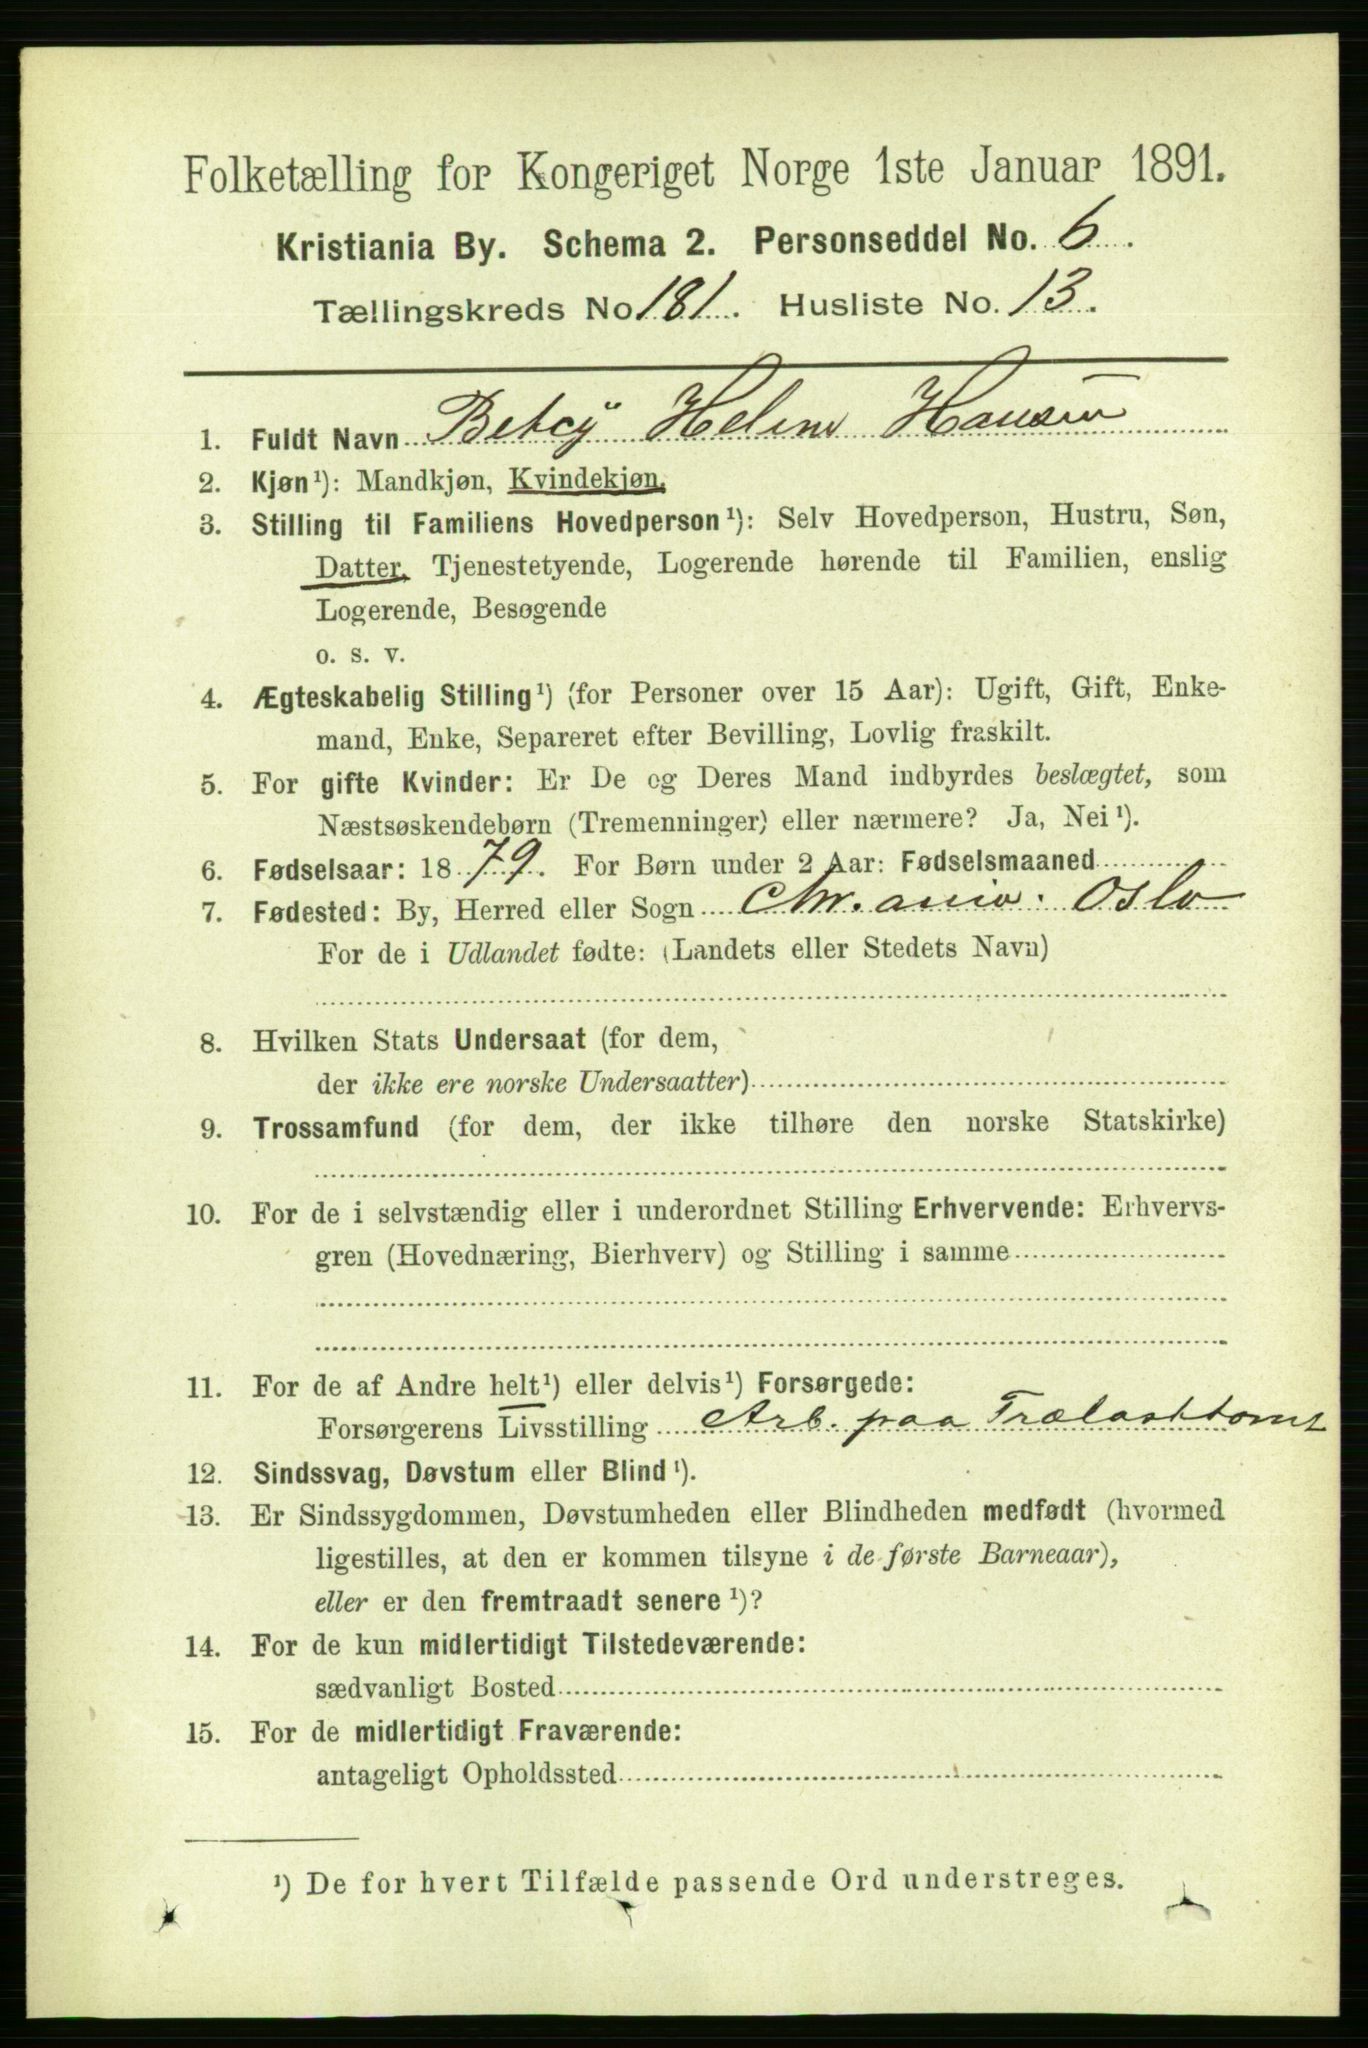 Folketælling for Kongeriget Norge 1ste Januar 1891.
Kristiania By. Schema 2. Personseddel No. 6.
Tællingskreds No 181. Husliste No. 13.
1. Fuldt Navn Betcy Helene Hansen
2. Kjøn¹): Mandkjøn, Kvindekjøn.
3. Stilling til Familiens Hovedperson¹): Selv Hovedperson, Hustru, Søn,
Datter, Tjenestetyende, Logerende hørende til Familien, enslig
Logerende, Besøgende
o. s. v.
4. Ægteskabelig Stilling¹) (for Personer over 15 Aar): Ugift, Gift, Enke-
mand, Enke, Separeret efter Bevilling, Lovlig fraskilt.
5. For gifte Kvinder: Er De og Deres Mand indbyrdes beslægtet, som
Næstsøskendebørn (Tremenninger) eller nærmere? Ja, Nei¹).
6. Fødselsaar: 1879. For Børn under 2 Aar: Fødselsmaaned
7. Fødested: By, Herred eller Sogn Chr.ania. Oslo
For de i Udlandet fødte: (Landets eller Stedets Navn)
8. Hvilken Stats Undersaat (for dem,
der ikke ere norske Undersaatter)
9. Trossamfund (for dem, der ikke tilhøre den norske Statskirke)
10. For de i selvstændig eller i underordnet Stilling Erhvervende: Erhvervs-
gren (Hovednæring, Bierhverv) og Stilling i samme
11. For de af Andre helt¹) eller delvis¹) Forsørgede:
Forsørgerens Livsstilling Arb. paa Trælasttomt
12. Sindssvag, Døvstum eller Blind¹).
13. Er Sindssygdommen, Døvstumheden eller Blindheden medfødt (hvormed
ligestilles, at den er kommen tilsyne i de første Barneaar),
eller er den fremtraadt senere¹)?
14. For de kun midlertidigt Tilstedeværende:
sædvanligt Bosted
15. For de midlertidigt Fraværende:
antageligt Opholdssted
¹) De for hvert Tilfælde passende Ord understreges.